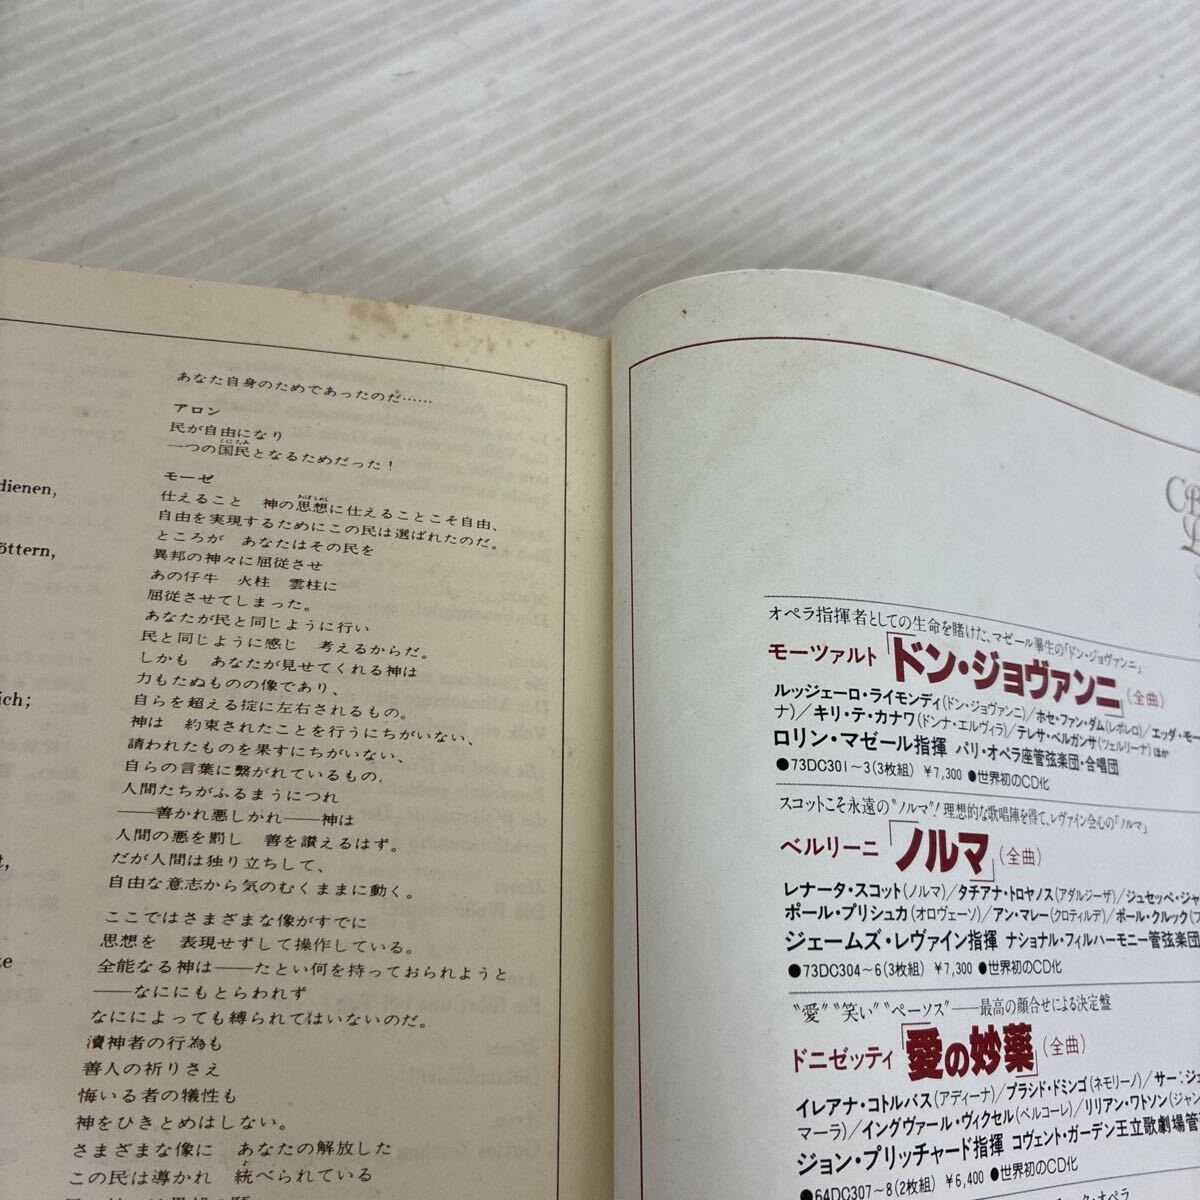 dienen,
öttern,
ich;
t,
te
あなた自身のためであったのだ……
アロン
民が自由になり
一つの国民となるためだった！
くにたみ
モーゼ
おぼしめし
仕えること　神の思想に仕えることこそ自由、
自由を実現するためにこの民は選ばれたのだ。
ところが　あなたはその民を
異邦の神々に屈従させ
あの仔牛　火柱　雲柱に
屈従させてしまった。
あなたが民と同じように行い
民と同じように感じ　考えるからだ。
しかも　あなたが見せてくれる神は
力もたぬものの像であり、
自らを超える掟に左右されるもの。
神は　約束されたことを行うにちがいない、
請われたものを果すにちがいない、
自らの言葉に繋がれているもの。
人間たちがふるまうにつれ
——善かれ悪しかれ——神は
人間の悪を罰し　善を讃えるはず。
だが人間は独り立ちして、
自由な意志から気のむくままに動く。
ここではさまざまな像がすでに
思想を　表現せずして操作している。
全能なる神は——たとい何を持っておられようと
——なににもとらわれず
なにによっても縛られてはいないのだ。
瀆神者の行為も
善人の祈りさえ
悔いる者の犠牲も
神をひきとめはしない。
さまざまな像に　あなたの解放した
この民は導かれ　統べられている
オペラ指揮者としての生命を賭けた、マゼール畢生の「ドン・ジョヴァンニ」
モーツァルト「ドン・ジョヴァンニ」(全曲)
ルッジェーロ・ライモンディ(ドン・ジョヴァンニ)／ホセ・ファン・ダム(レポレロ)／エッダ・モー
ナ)／キリ・テ・カナワ(ドンナ・エルヴィラ)／テレサ・ベルガンサ(ツェルリーナ)ほか
ロリン・マゼール指揮　パリ・オペラ座管弦楽団・合唱団
●73DC301〜3(3枚組) ￥7,300 ●世界初のCD化
スコットこそ永遠の“ノルマ”！理想的な歌唱陣を得て、レヴァイン会心の「ノルマ」
ベルリーニ「ノルマ」(全曲)
レナータ・スコット(ノルマ)／タチアナ・トロヤノス(アダルジーザ)／ジュセッペ・ジャ
ポール・プリシュカ(オロヴェーソ)／アン・マレー(クロティルデ)／ポール・クルック(フ
ジェームズ・レヴァイン指揮　ナショナル・フィルハーモニー管弦楽団
●73DC304〜6(3枚組) ￥7,300 ●世界初のCD化
“愛”“笑い”“ペーソス”——最高の顔合せによる決定盤
ドニゼッティ「愛の妙薬」(全曲)
イレアナ・コトルバス(アディーナ)／プラシド・ドミンゴ(ネモリーノ)／サー・ジェ
マーラ)／イングヴァール・ヴィクセル(ベルコーレ)／リリアン・ワトソン(ジャン
ジョン・プリッチャード指揮　コヴェント・ガーデン王立歌劇場管
●64DC307〜8(2枚組) ￥6,400 ●世界初のCD化